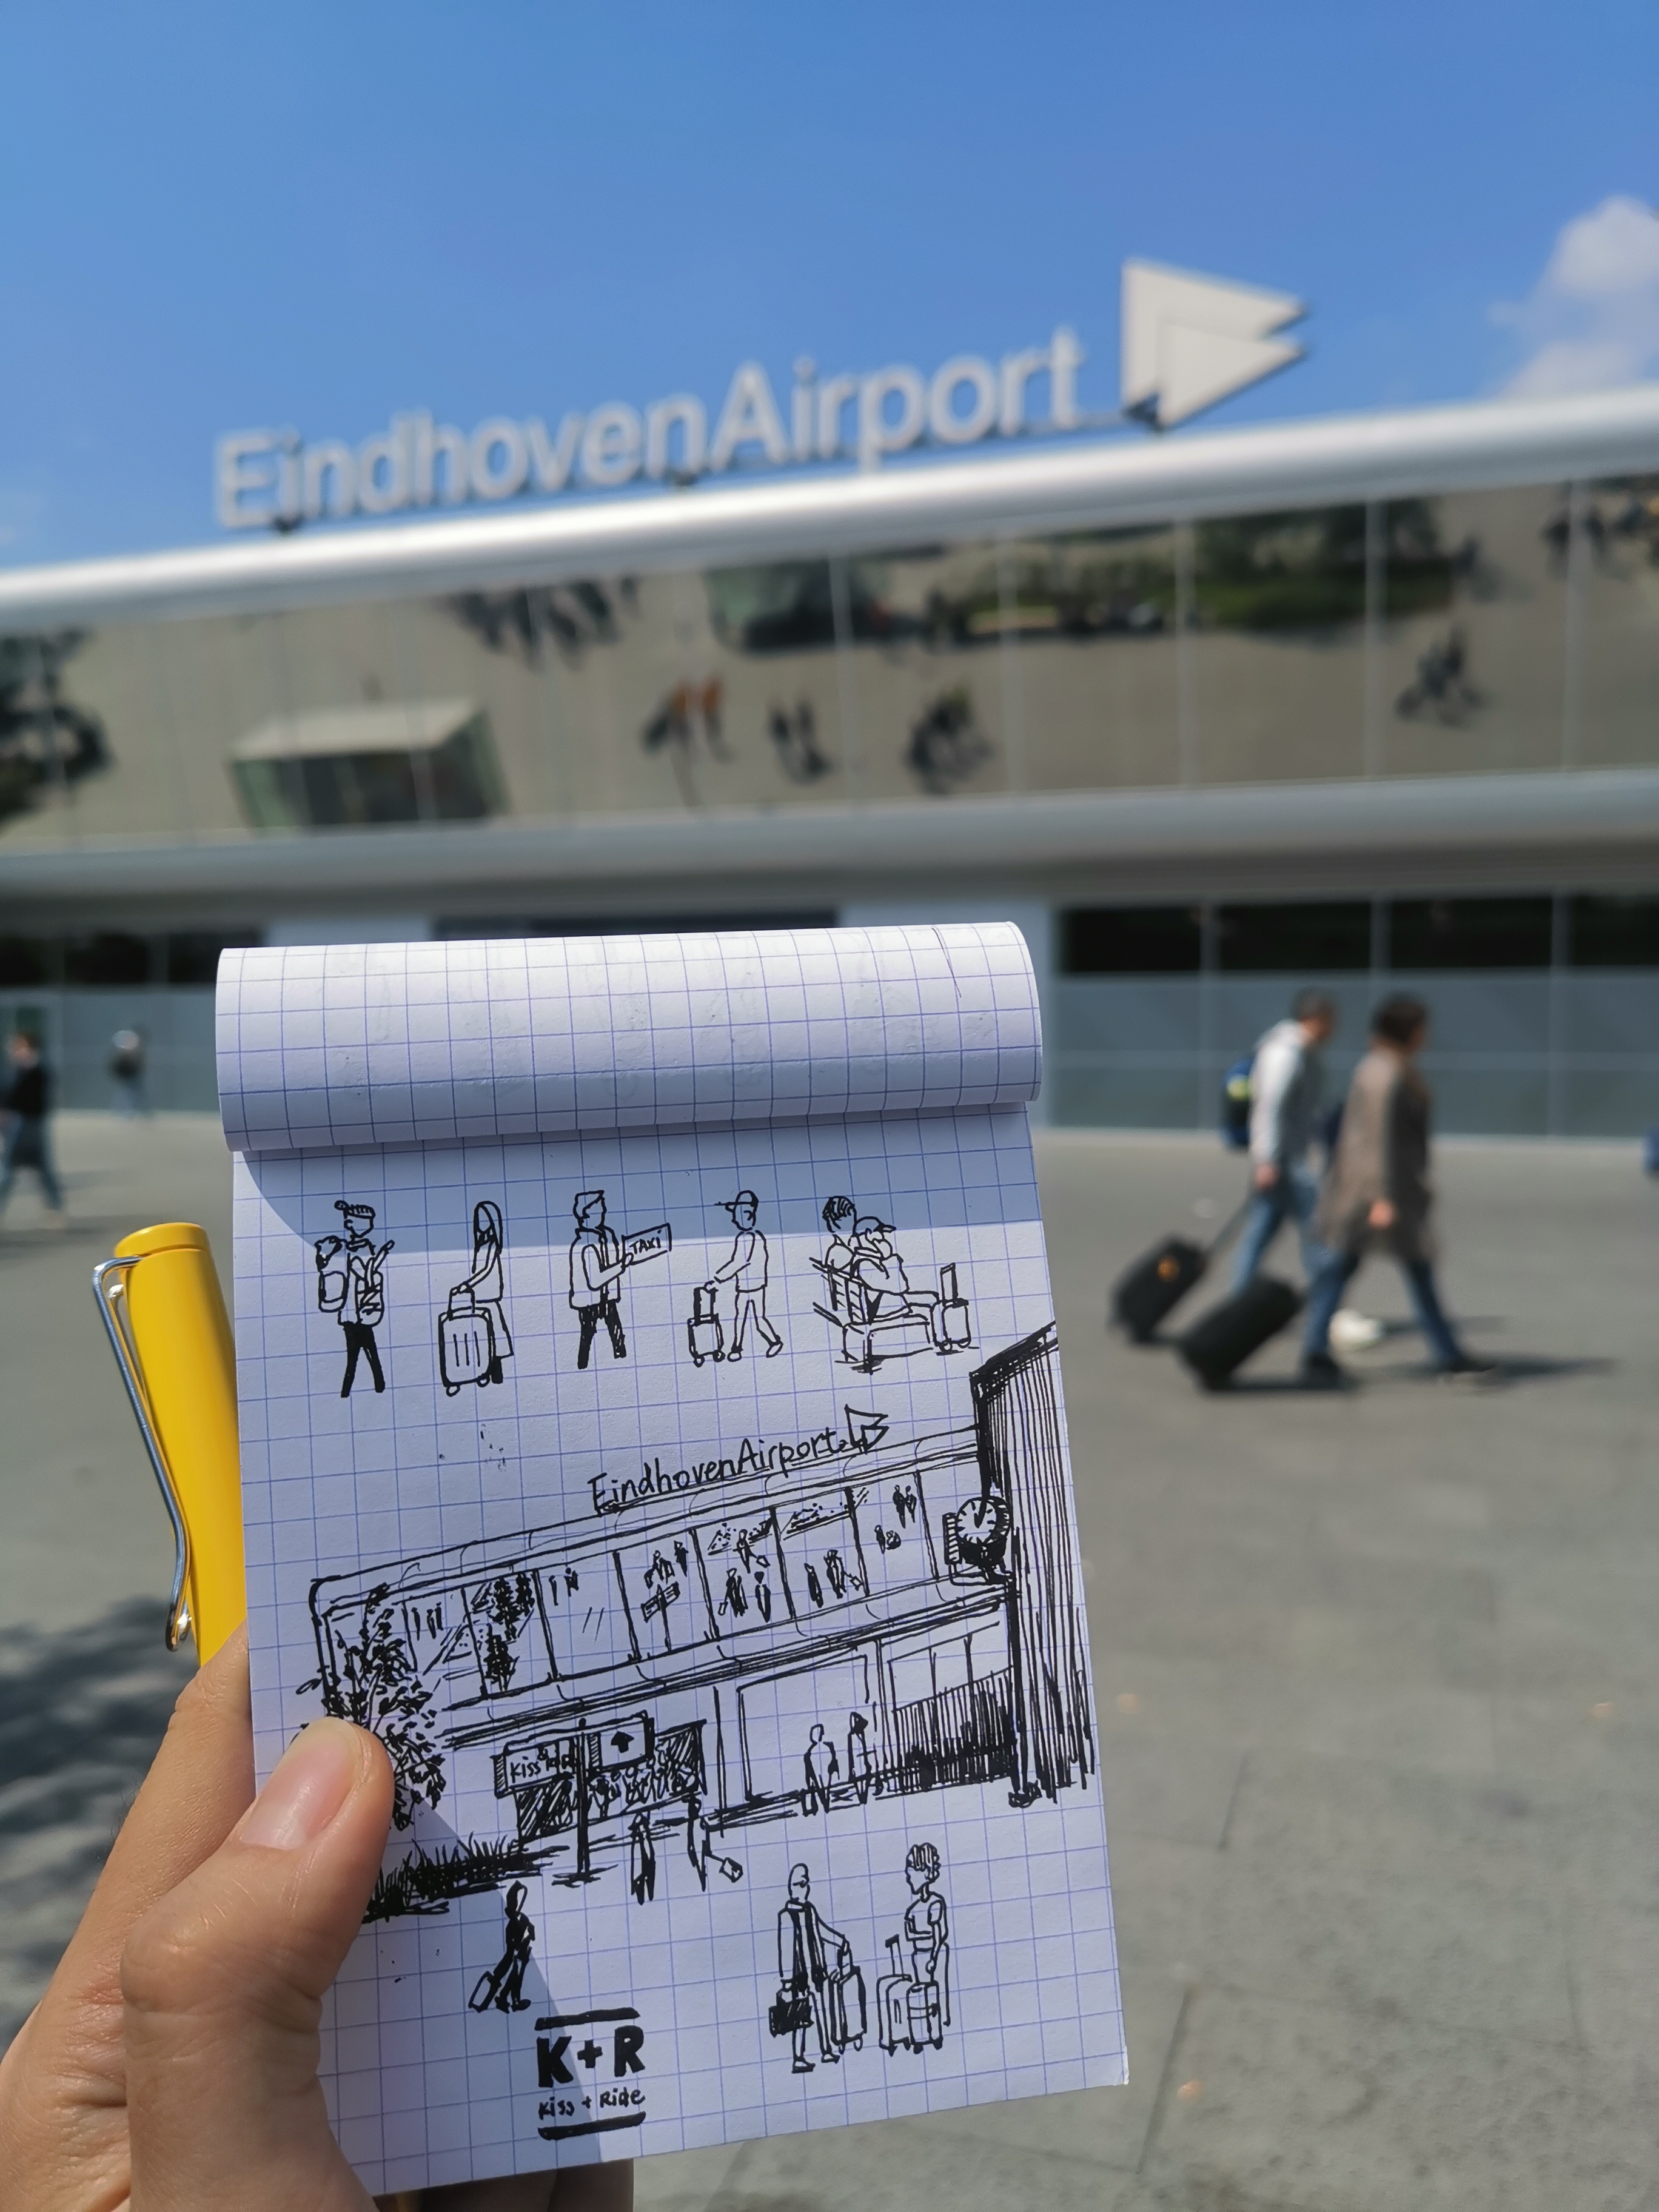 EindhovenAirport
TAXI
EindhovenAirport
Kiss+Ride
K+R
Kiss + Ride